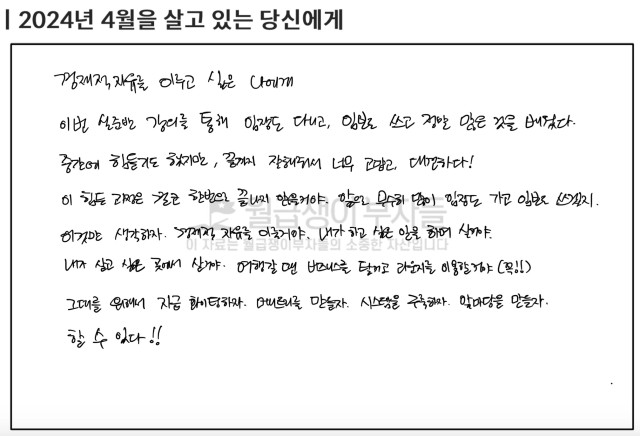 | 2024년 4월을 살고 있는 당신에게
경제적 자유를 이루고 싶은 나에게
이번 실준반 강의를 통해 임장도 다니고, 임보도 쓰고 정말 많은 것을 배웠다.
중간에 힘들기도 했지만, 끝까지 잘해줘서 너무 고맙고, 대견하다!
이 힘든 과정은 결코 한번으로 끝나지 않을거야. 앞으로 무수히 많이 임장도 가고 임보도 쓰겠지.
월급쟁이부자들
이것만 생각하자. 경제적 자유를 이룰거야. 내가 하고 싶은 일을 하며 살거야.
이 자료는 월급쟁이부자들의 소중한 자산입니다
내가 살고 싶은 곳에서 살거야. 여행갈 땐 비즈니스를 타고 라운지를 이용할거야 (꼭!!)
그때를 위해서 지금 화이팅하자. 머니트리를 만들자. 시스템을 구축하자. 앞마당을 만들자.
할 수 있다!!